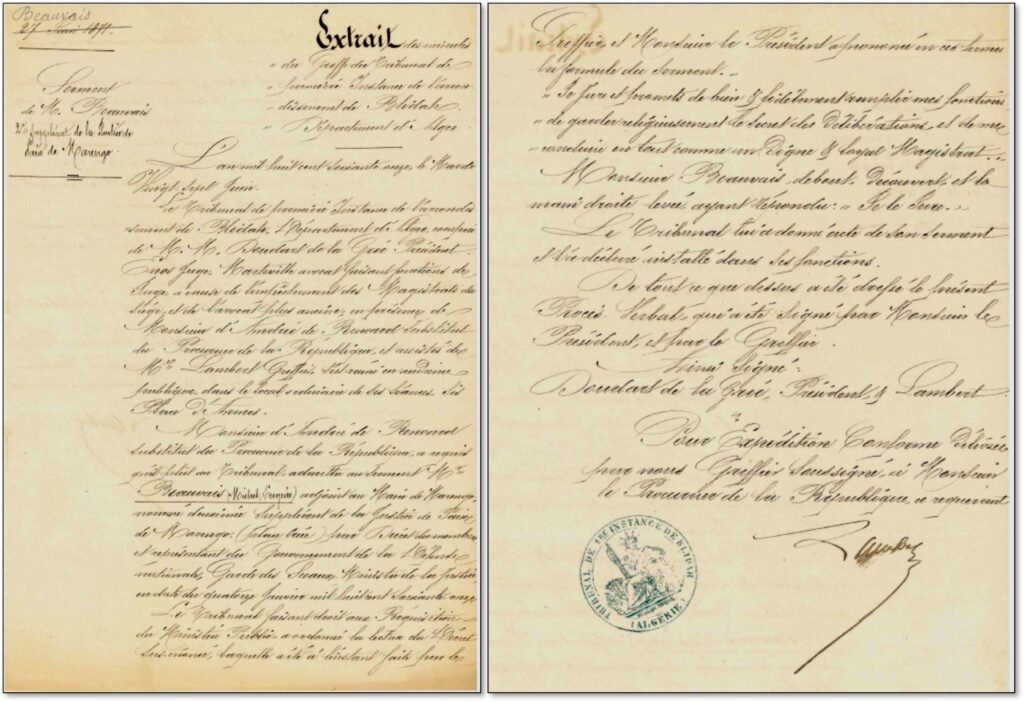 Beauvais
27 Juin 1871.
Serment
de M. Beauvais
2me Suppléant de la Justice de
Paix de Marengo.
Extrait des minutes
" du Greffe du Tribunal de
" première Instance de l'arron-
" dissement de Blidah,
" Département d'Alger
L'an mil huit cent soixante onze le Mardi
Vingt Sept Juin.
Le Tribunal de première Instance de l'arrondis
sement de Blidah, Département d'Alger, composé
de M. M. Boudart de la Gué Président
Juge, Marteville avocat faisant fonctions de
Juge, à cause de l'empêchement des Magistrats du
siège, et de l'avocat plus ancien; en présence de
Monsieur d'André de Renoard Substitut
du Procureur de la République, et assistés de
Me Lambert Greffier, s'est réuni en audience
publique, dans le local ordinaire de ses séances sis
Place d'Armes.
Monsieur d'André de Renoard
substitut du Procureur de la République, a requis
qu'il plut au Tribunal, admettre au serment Mr
Beauvais (Michel, Eugène) adjoint au Maire de Marengo,
nommé deuxième Suppléant de la Justice de Paix
de Marengo, (place créée) par Décret du membre
et représentant du Gouvernement de la Défense
nationale, Garde des Sceaux, Ministre de la Justice
en date du quatorze Janvier mil huit cent soixante onze
Le Tribunal faisant droit aux Réquisitions
du Ministère Public, a ordonné la lecture du Décret
susénoncé, laquelle a été à l'instant faite par le
Greffier, et Monsieur le Président a prononcé en ces termes
la formule du serment. -
" Je jure et promets de bien & fidèlement remplir mes fonctions
" de garder religieusement le secret des délibérations, et de me
" conduire en tout comme un digne & loyal Magistrat. "
Monsieur Beauvais, debout, découvert, et la
main droite levée ayant répondu: " Je le Jure. "
Le Tribunal lui a donné acte de son serment
et l'a déclaré installé dans ses fonctions.
De tout ce que dessus a été dressé le présent
Procès Verbal, qui a été signé par Monsieur le
Président, et par le Greffier.
Ainsi Signé:
Boudart de la Gué, Président, & Lambert
Pour Expédition Conforme délivrée
par nous Greffier soussigné, à Monsieur
le Procureur de la République, ce requérant
TRIBUNAL DE 1RE INSTANCE DE BLIDAH
(ALGÉRIE)